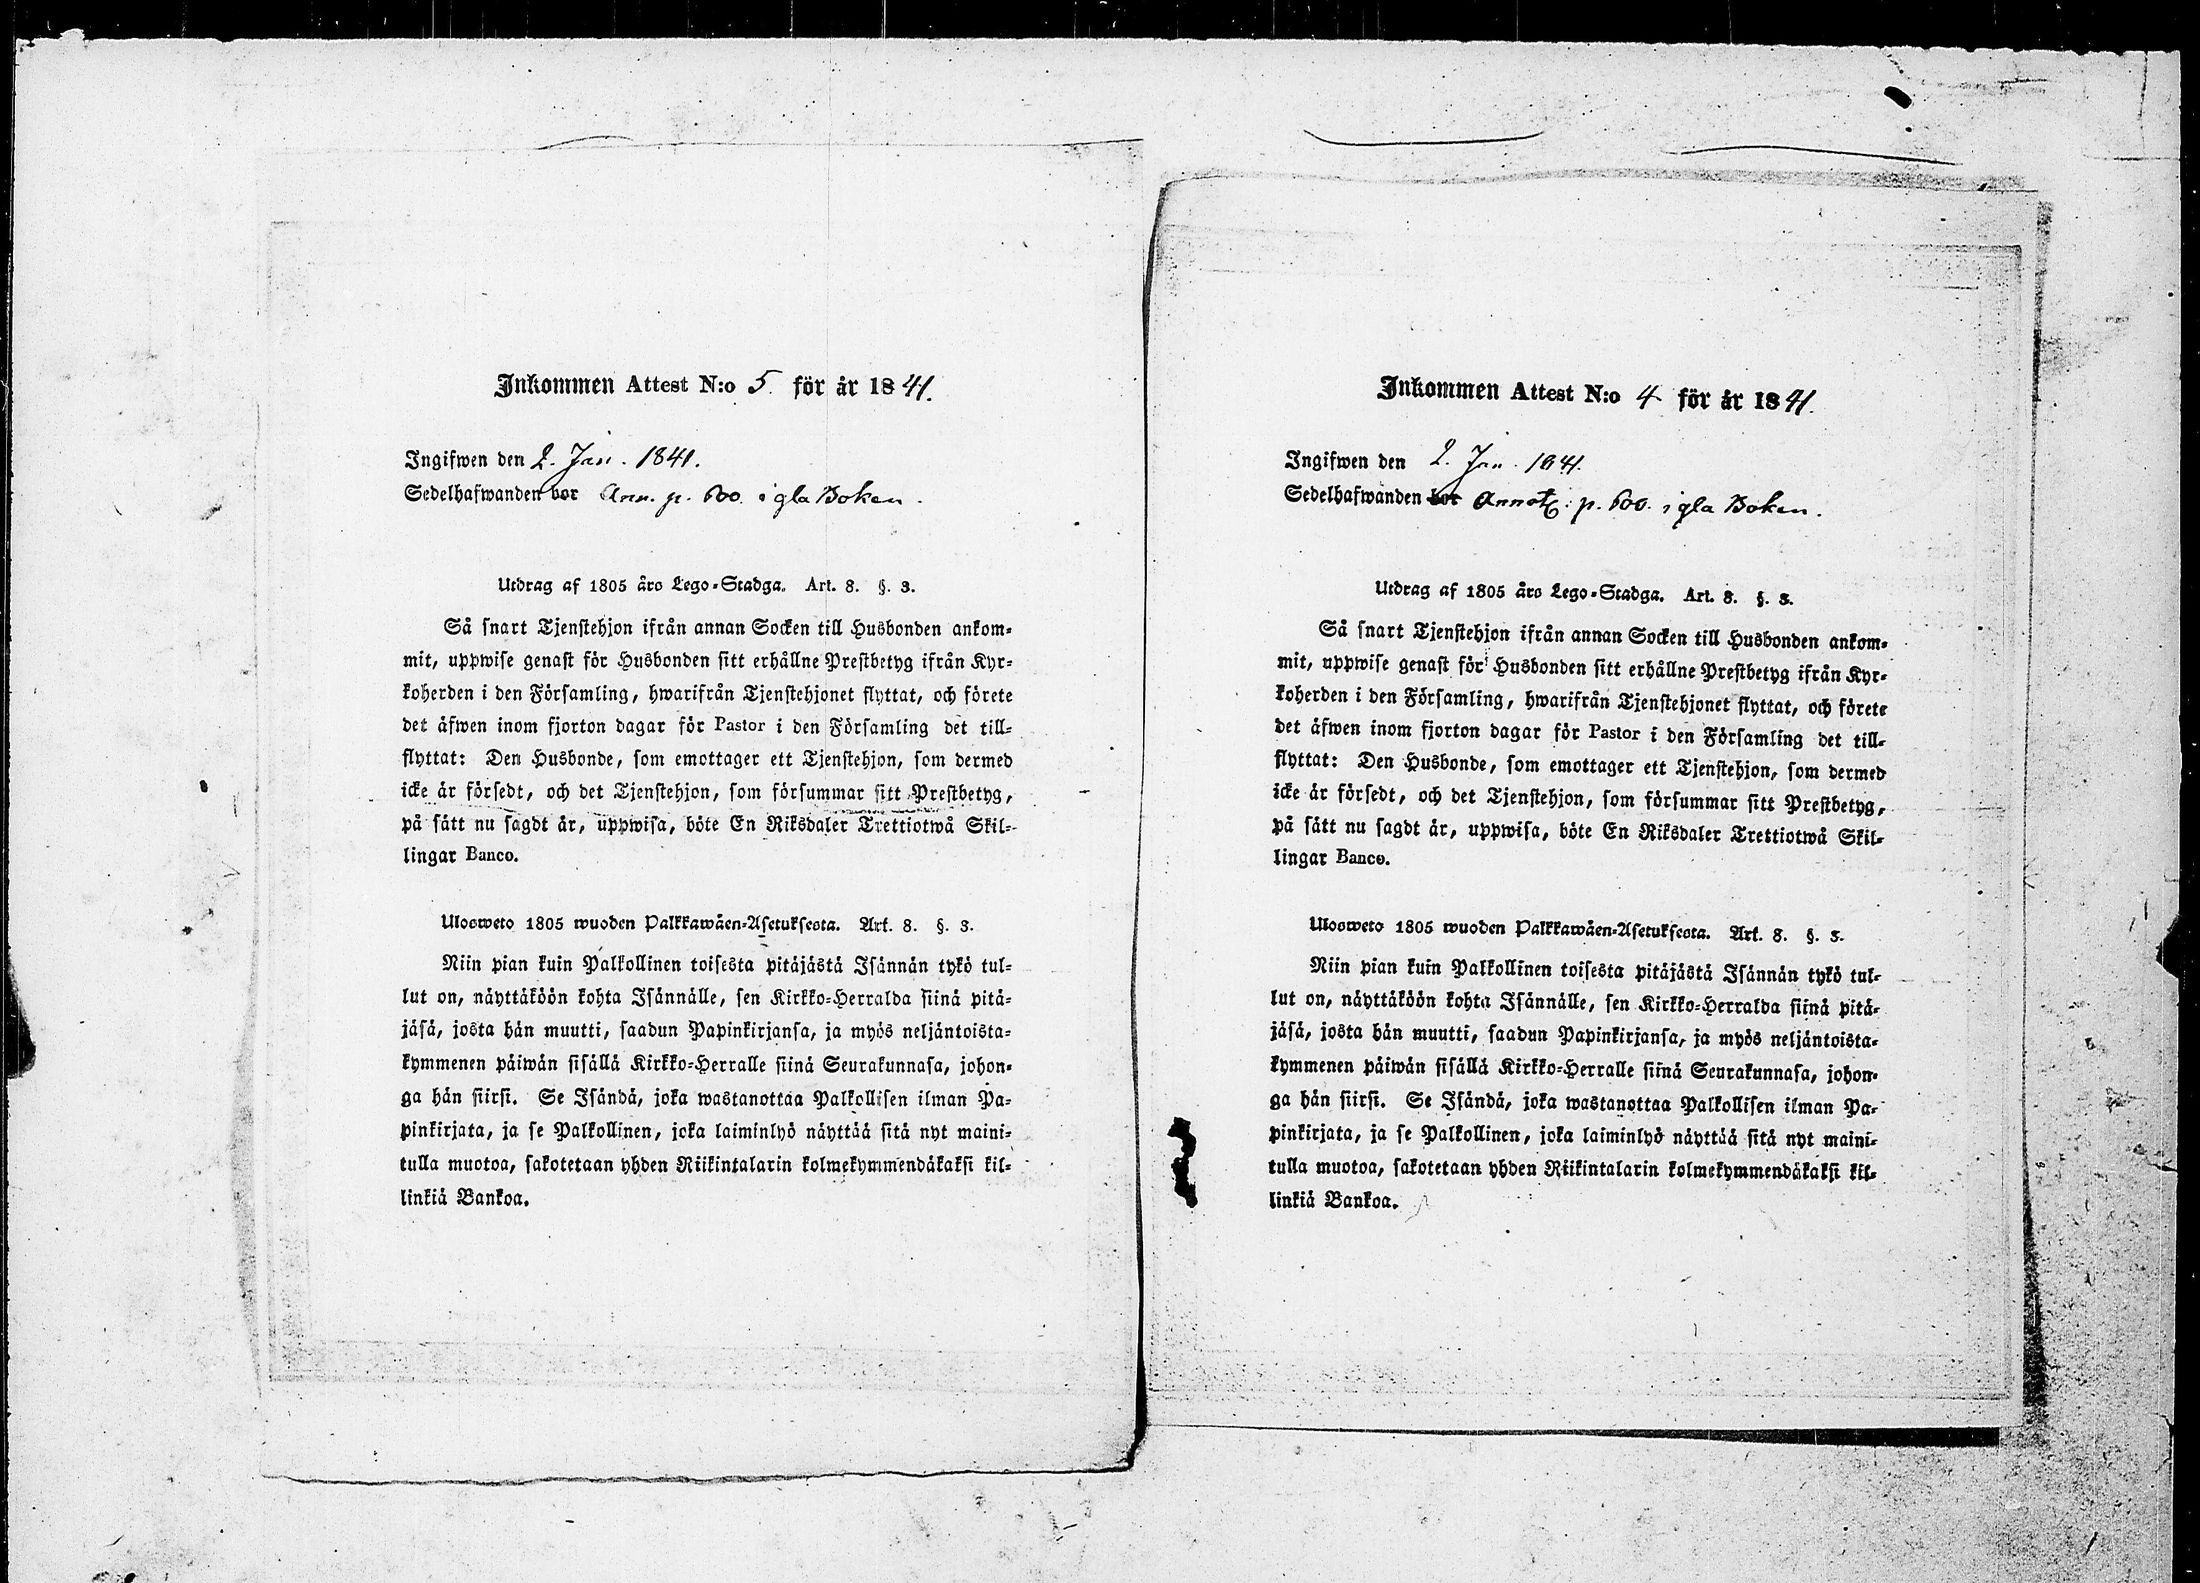 Inkommen Attest N:o 5. för år 1841.
Ingifwen den 2. Jan. 1841.
Sedelhafwanden bor Ann. p. 600. i gla Boken.
Utdrag af 1805 års Lego-Stadga. Art. 8. §. 3.
Så snart Tjenstehjon ifrån annan Socken till Husbonden ankom-
mit, uppwise genast för Husbonden sitt erhållne Prestbetyg ifrån Kyr-
koherden i den Församling, hwarifrån Tjenstehjonet flyttat, och förete
det äfwen inom fjorton dagar för Pastor i den Församling det till-
flyttat: Den Husbonde, som emottager ett Tjenstehjon, som dermed
icke är försedt, och det Tjenstehjon, som försummar sitt Prestbetyg,
på sätt nu sagdt är, uppwisa, böte En Riksdaler Trettiotwå Skil-
lingar Banco.
Ulosweto 1805 wuoden Palkkawäen-Asetuksesta. Art. 8. §. 3.
Niin pian kuin Palkollinen toisesta pitäjästä Isännän tykö tul-
lut on, näyttäköön kohta Isännälle, sen Kirkko-Herralda siinä pitä-
jäsä, josta hän muutti, saadun Papinkirjansa, ja myös neljäntoista-
kymmenen päiwän sisällä Kirkko-Herralle siinä Seurakunnasa, johon-
ga hän siirsi. Se Isändä, joka wastanottaa Palkollisen ilman Pa-
pinkirjata, ja se Palkollinen, joka laiminlyö näyttää sitä nyt maini-
tulla muotoa, sakotetaan yhden Riikintalarin kolmekymmendäkaksi kil-
linkiä Bankoa.
Inkommen Attest N:o 4 för år 1841.
Ingifwen den 2. Jan. 1841.
Sedelhafwanden bor Annot: p. 600. i gla Boken.
Utdrag af 1805 års Lego-Stadga. Art. 8. §. 3.
Så snart Tjenstehjon ifrån annan Socken till Husbonden ankom-
mit, uppwise genast för Husbonden sitt erhållne Prestbetyg ifrån Kyr-
koherden i den Församling, hwarifrån Tjenstehjonet flyttat, och förete
det äfwen inom fjorton dagar för Pastor i den Församling det till-
flyttat: Den Husbonde, som emottager ett Tjenstehjon, som dermed
icke är försedt, och det Tjenstehjon, som försummar sitt Prestbetyg,
på sätt nu sagdt är, uppwisa, böte En Riksdaler Trettiotwå Skil-
lingar Banco.
Ulosweto 1805 wuoden Palkkawäen-Asetuksesta. Art. 8. §. 3.
Niin pian kuin Palkollinen toisesta pitäjästä Isännän tykö tul-
lut on, näyttäköön kohta Isännälle, sen Kirkko-Herralda siinä pitä-
jäsä, josta hän muutti, saadun Papinkirjansa, ja myös neljäntoista-
kymmenen päiwän sisällä Kirkko-Herralle siinä Seurakunnasa, johon-
ga hän siirsi. Se Isändä, joka wastanottaa Palkollisen ilman Pa-
pinkirjata, ja se Palkollinen, joka laiminlyö näyttää sitä nyt maini-
tulla muotoa, sakotetaan yhden Riikintalarin kolmekymmendäkaksi kil-
linkiä Bankoa.